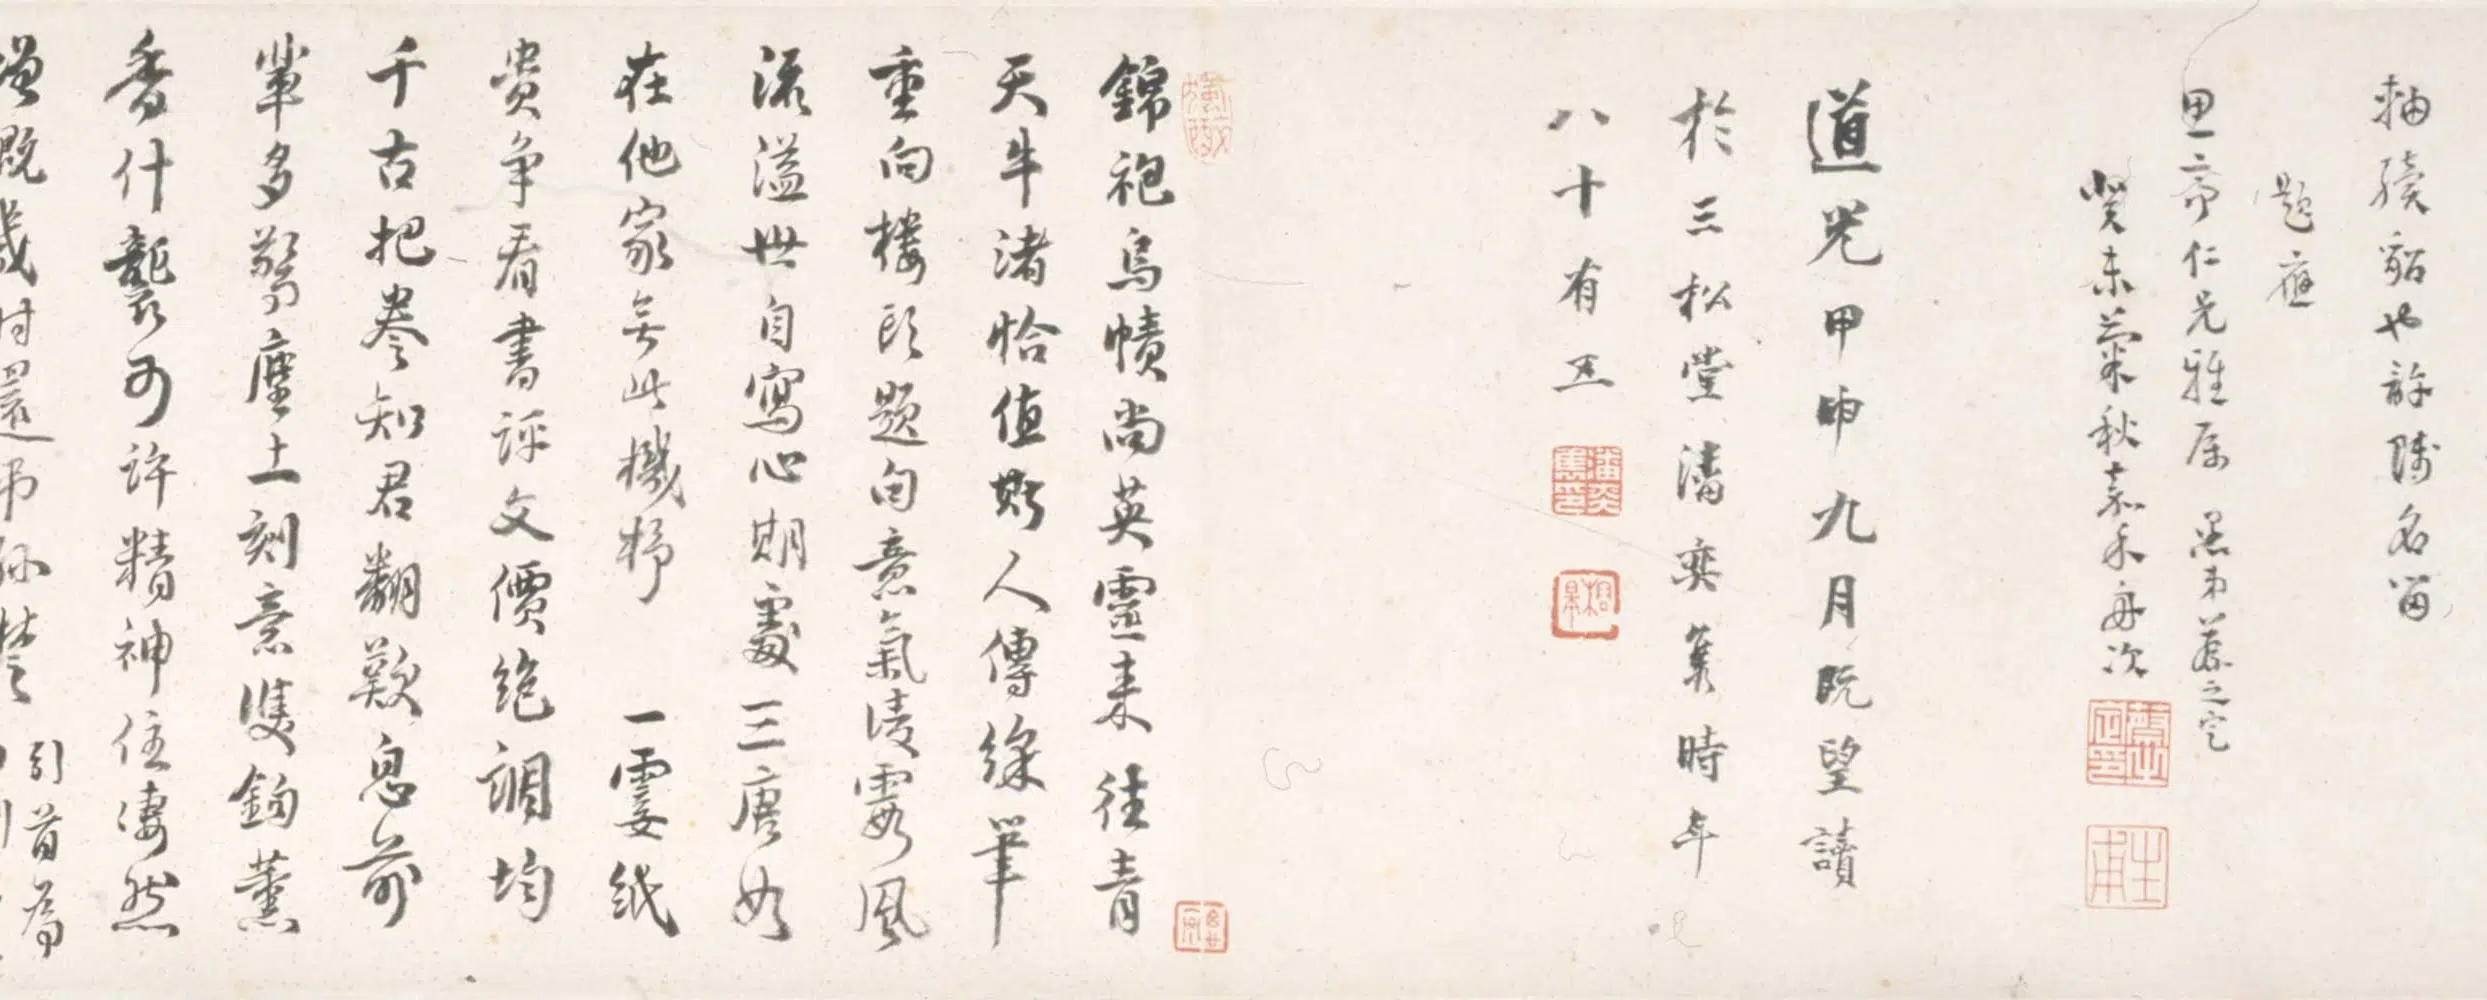 軸續貂也許賤名留
題應
思齋仁兄雅属 愚弟蔡之定
癸未菊秋嘉禾舟次
道光甲申九月既望讀
於三松堂潘奕雋時年
八十有五
錦袍烏幘尚英靈来往青
天牛渚恰值斯人傳綵筆
重向樓頭題句意氣凌霄風
流溢世自寫心期處三唐如
在他家無此機杼 一霎紙
貴爭看書評文價絶調均
千古把卷知君翻歎息前
輩多驚塵土刻意雙鉤薰
香什襲可許精神住淒然
引首為